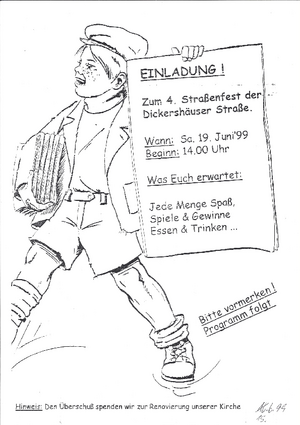 EINLADUNG !
Zum 4. Straßenfest der
Dickershäuser Straße.
Wann: Sa, 19. Juni'99
Beginn: 14.00 Uhr
Was Euch erwartet:
Jede Menge Spaß,
Spiele & Gewinne
Essen & Trinken ...
Bitte vormerken !
Programm folgt
Hinweis: Den Überschuß spenden wir zur Renovierung unserer Kirche